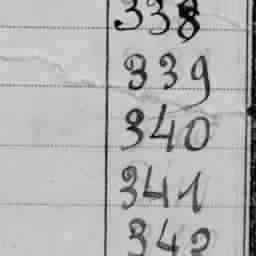 338
339
340
341
342